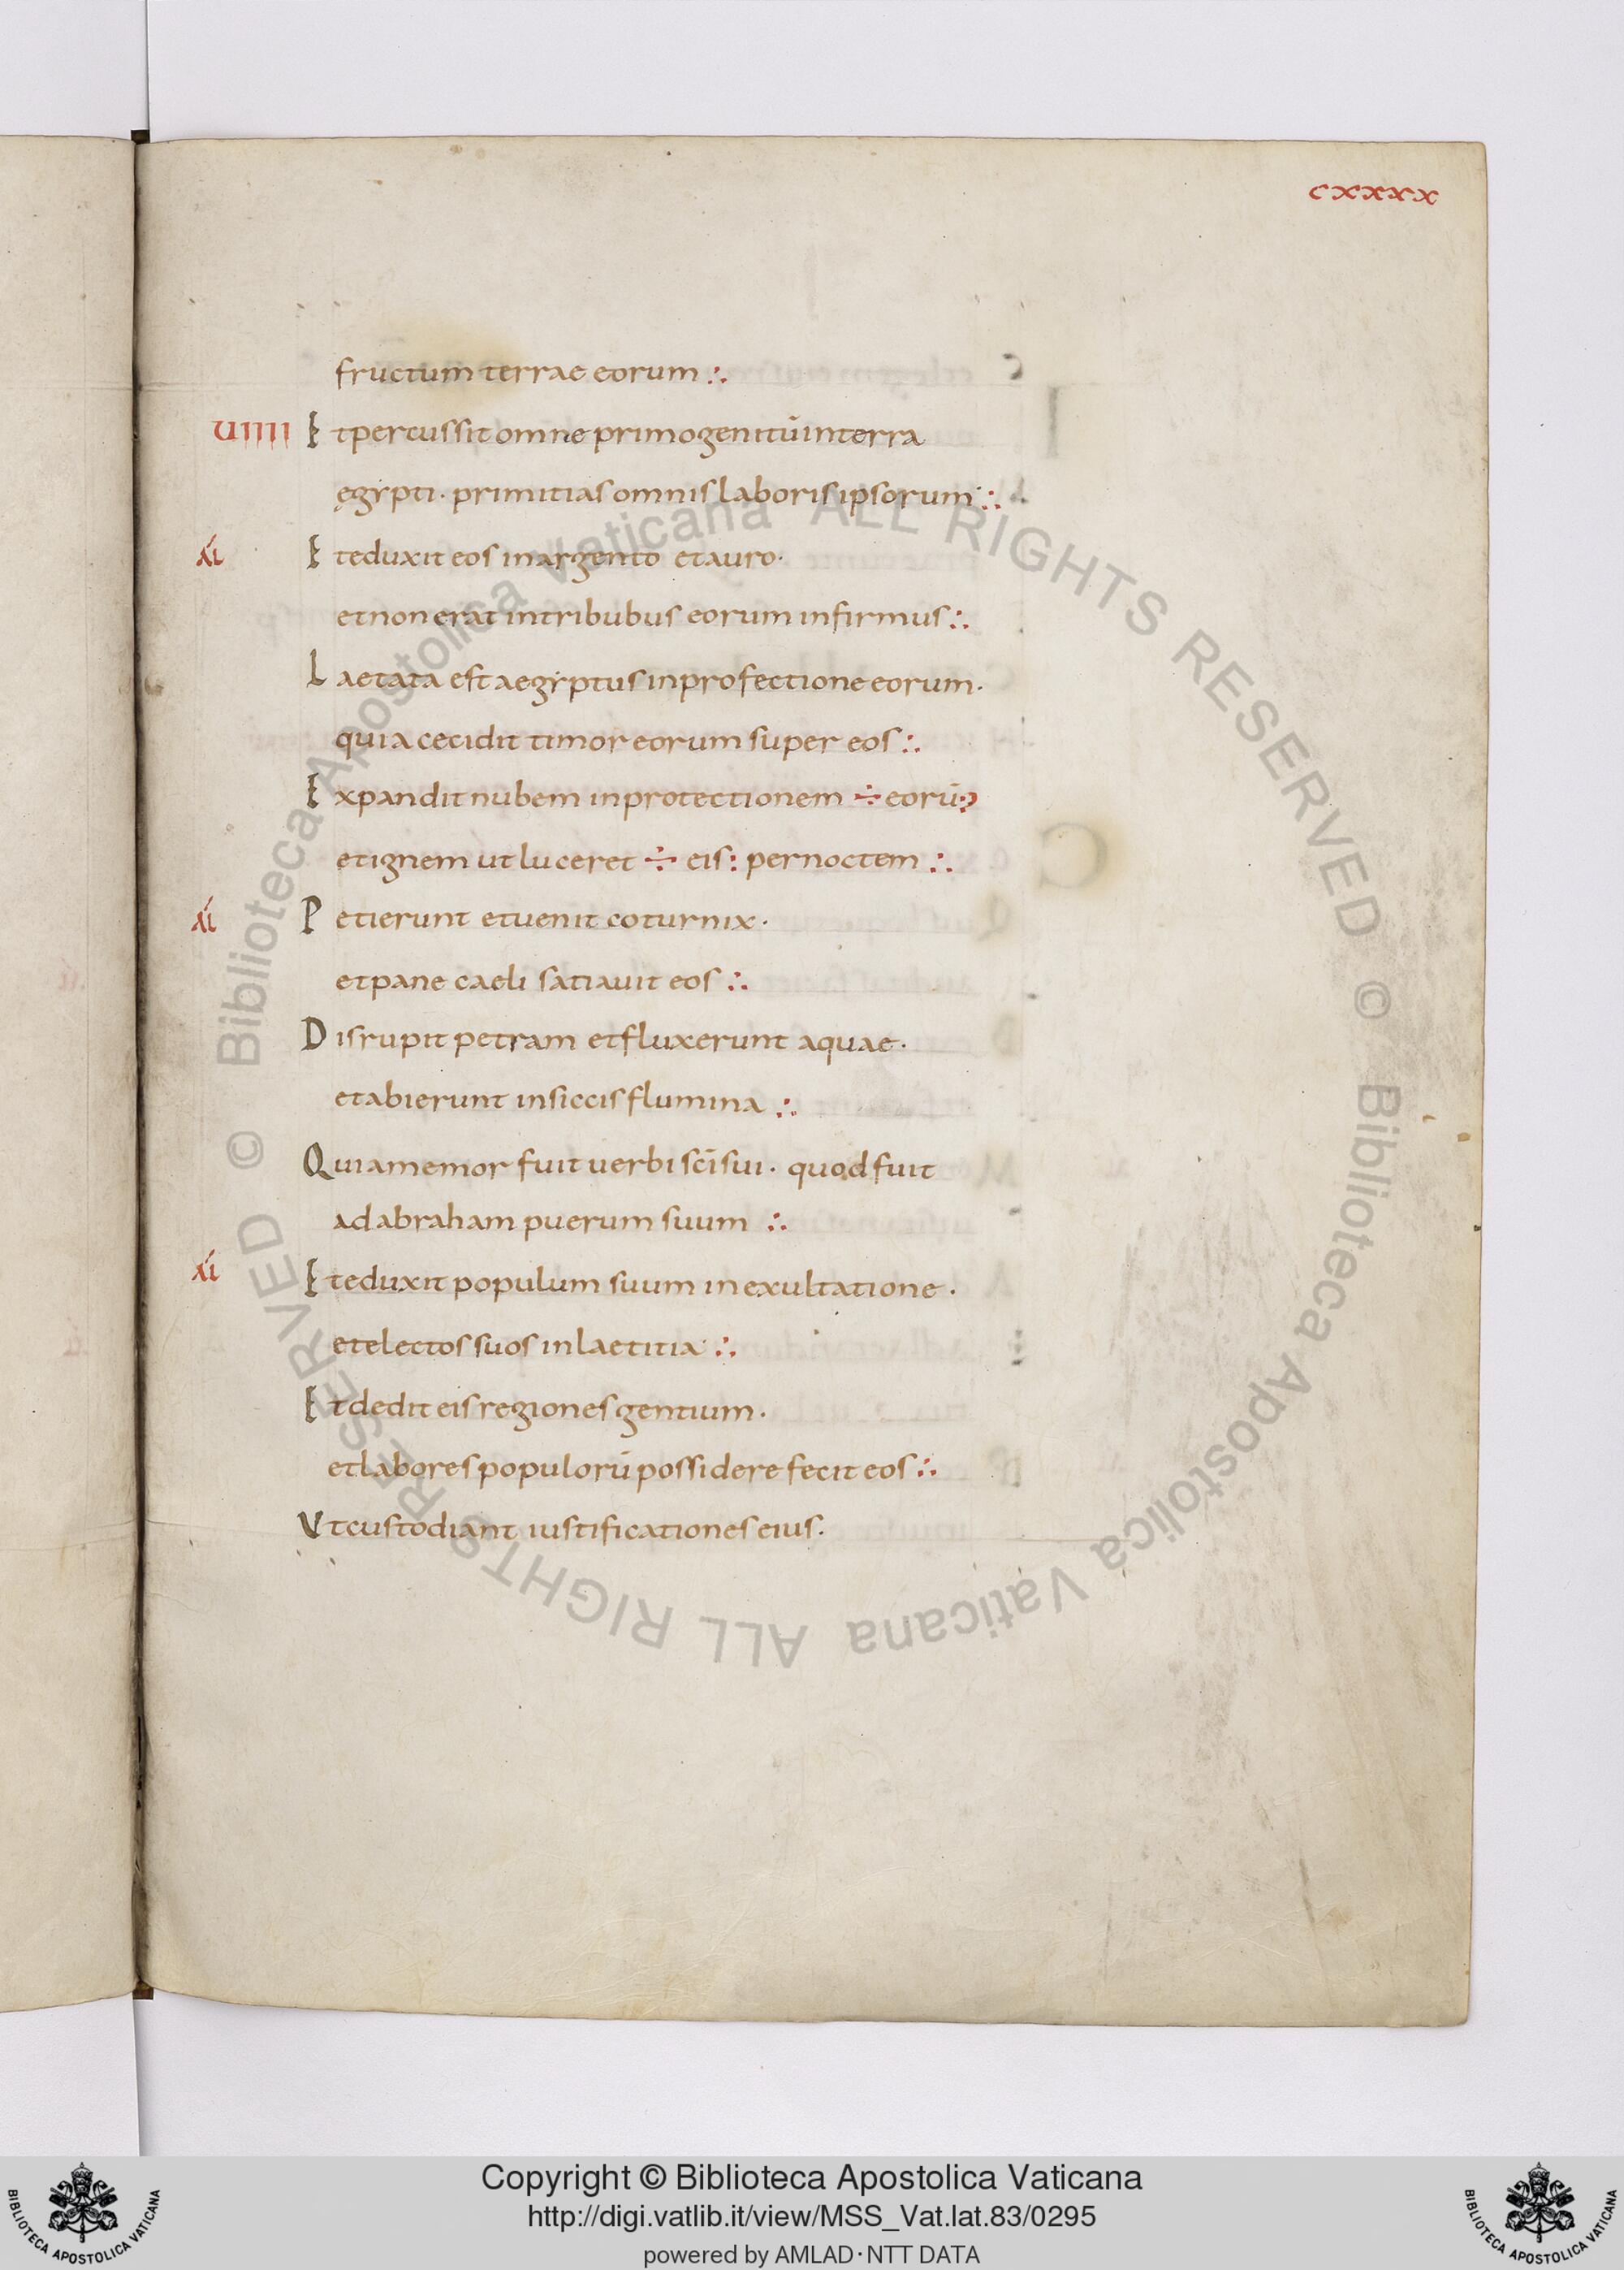 cxxxx
fructum terrae eorum ∴
uıııı Et percussit omne primogenitū in terra
ęgypti · primitias omnis laboris ipsorum ∴
xi Et eduxit eos in argento et auro ·
et non erat in tribubus eorum infirmus ∴
Laetata est aegyptus in profectione eorum ·
quia cecidit timor eorum super eos ∴
Expandit nubem in protectionem ÷ eorū:
et ignem ut luceret ÷ eis : per noctem ∴
xi Petierunt et uenit coturnix ·
et pane caeli satiauit eos ∴
Disrupit petram et fluxerunt aquae ·
et abierunt in siccis flumina ∴
Quia memor fuit uerbi sc̄i sui · quod fuit
ad abraham puerum suum ∴
xi Et eduxit populum suum in exultatione ·
et electos suos in laetitia ∴
Et dedit eis regiones gentium ·
et labores populorū possidere fecit eos ∴
Vt custodiant iustificationes eius ·
© Biblioteca Apostolica Vaticana ALL RIGHTS RESERVED © Biblioteca Apostolica Vaticana ALL RIGHTS RESERVED
Copyright © Biblioteca Apostolica Vaticana
http://digi.vatlib.it/view/MSS_Vat.lat.83/0295
powered by AMLAD · NTT DATA
BIBLIOTECA APOSTOLICA VATICANA
BIBLIOTECA APOSTOLICA VATICANA